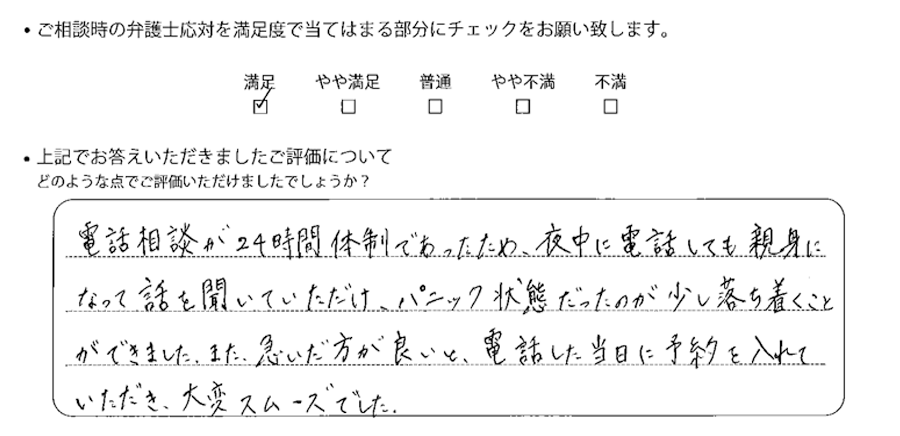 • ご相談時の弁護士応対を満足度で当てはまる部分にチェックをお願い致します。
満足 やや満足 普通 やや不満 不満
☑ ☐ ☐ ☐ ☐
• 上記でお答えいただきましたご評価について
どのような点でご評価いただけましたでしょうか？
電話相談が24時間体制であったため、夜中に電話しても親身に
なって話を聞いていただけ、パニック状態だったのが少し落ち着くこと
ができました。また、急いだ方が良いと、電話した当日に予約を入れて
いただき、大変スムーズでした。